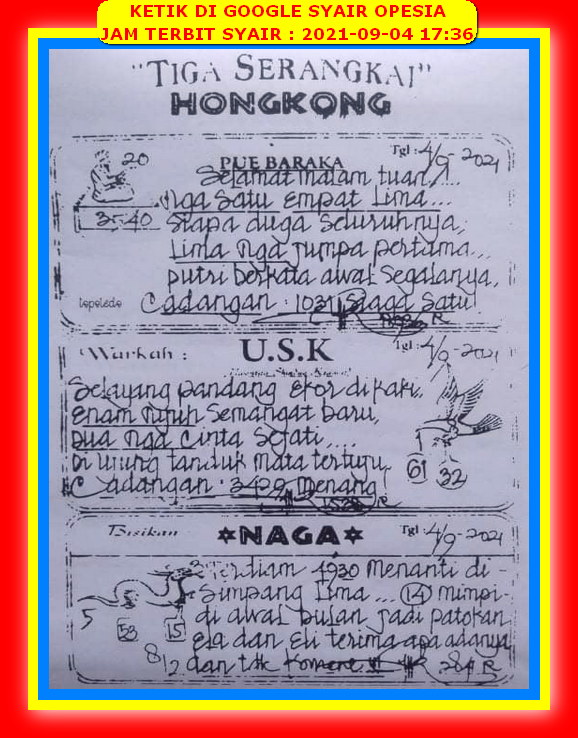 KETIK DI GOOGLE SYAIR OPESIA
JAM TERBIT SYAIR : 2021-09-04 17:36
"TIGA SERANGKAI"
HONGKONG
Tgl : 4/9-2021
20
PUE BARAKA
Selamat malam tuan....
Tiga Satu Empat Lima...
35.40
Siapa duga seluruhnya,
Lima Tiga jumpa pertama...
putri berkata awal segalanya,
lepelede
Cadangan : 1031
Satu
Warkah :
U.S.K
Tgl : 4/9-2021
Selayang pandang Ekor di kaki,
Enam Tujuh Semangat baru,
Dua Tiga Cinta Sejati,....
Di ujung tanduk mata tertuju
61 32
Cadangan : 3429 menang
Bisikan
NAGA
Tgl : 4/9-2021
Terdiam 4930 Menanti di-
Simpang Lima ... 14 mimpi-
di awal bulan jadi patokan
5
53 15
Ela dan Eli terima apa adanya
8/12
dan tak